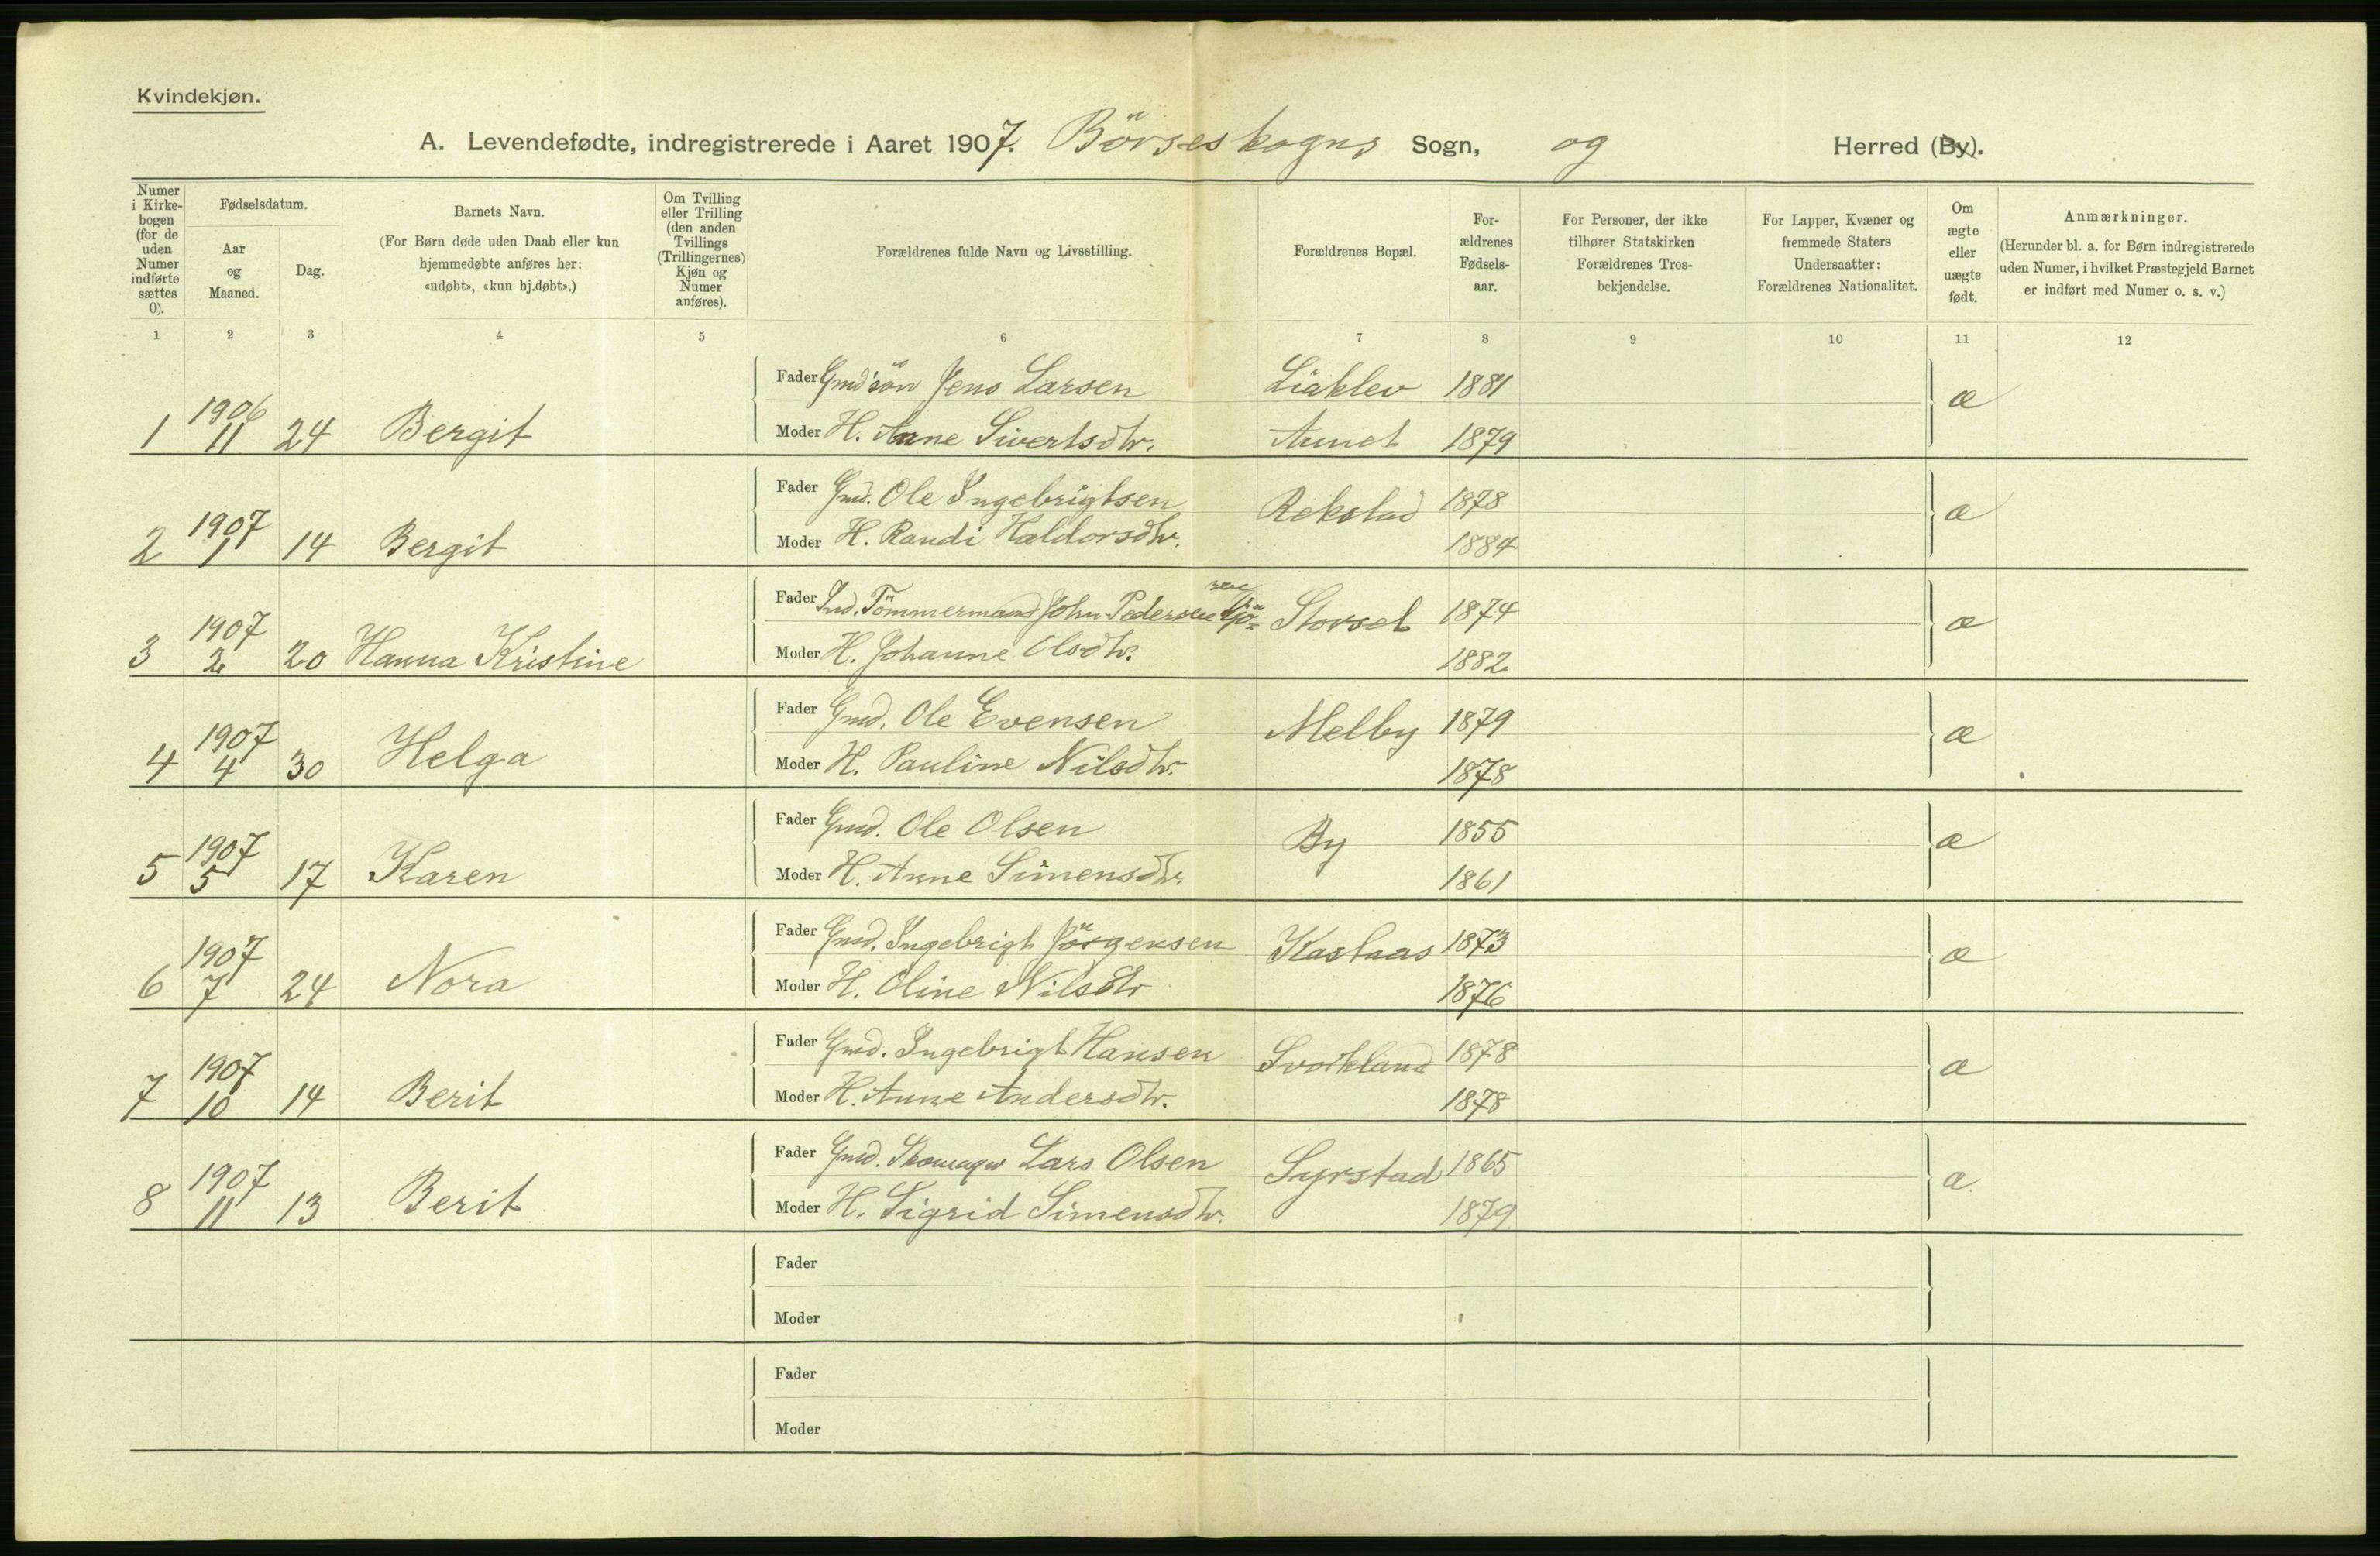 Kvindekjøn.
A. Levendefødte, indregistrerede i Aaret 1907. Börseskogns Sogn, og Herred (By).
Numer i Kirkebogen (for de uden Numer indførte sættes 0).
Fødselsdatum.
Aar og Maaned.
Dag.
Barnets Navn.
(For Børn døde uden Daab eller kun hjemmedøbte anføres her: «udøbt», «kun hj.døbt».)
Om Tvilling eller Trilling (den anden Tvillings (Trillingernes) Kjøn og Numer anføres).
Forældrenes fulde Navn og Livsstilling.
Forældrenes Bopæl.
Forældrenes Fødselsaar.
For Personer, der ikke tilhører Statskirken Forældrenes Trosbekjendelse.
For Lapper, Kvæner og fremmede Staters Undersaatter: Forældrenes Nationalitet.
Om ægte eller uægte født.
Anmærkninger.
(Herunder bl. a. for Børn indregistrerede uden Numer, i hvilket Præstegjeld Barnet er indført med Numer o. s. v.)
1 2 3 4 5 6 7 8 9 10 11 12
Fader Gmd'sön Jens Larsen Liaklev 1881
1 1906 11 24 Bergit Moder H. Anne Sivertsdtr. Aunet 1879 æ
Fader Gmd. Ole Ingebrigtsen Rekstad 1878
2 1907 1 14 Bergit Moder H. Randi Haldorsdtr. 1884 æ
Fader Ind. Tömmermand John Pedersen Storset 1874
3 1907 2 20 Hanna Kristine Moder H. Johanne Olsdtr. 1882 æ
Fader Gmd. Ole Evensen Melby 1879
4 1907 4 30 Helga Moder H. Pauline Nilsdtr. 1878 æ
Fader Gmd. Ole Olsen By 1855
5 1907 5 17 Karen Moder H. Anne Simensdtr. 1861 æ
Fader Gmd. Ingebrigt Jörgensen Kastaas 1873
6 1907 7 24 Nora Moder H. Oline Nilsdtr 1876 æ
Fader Gmd. Ingebrigt Hansen Svorkland 1878
7 1907 10 14 Berit Moder H. Anne Andersdtr. 1878 æ
Fader Gmd. Skomager Lars Olsen Syrstad 1865
8 1907 11 13 Berit Moder H. Sigrid Simensdtr. 1879 æ
Fader
Moder
Fader
Moder